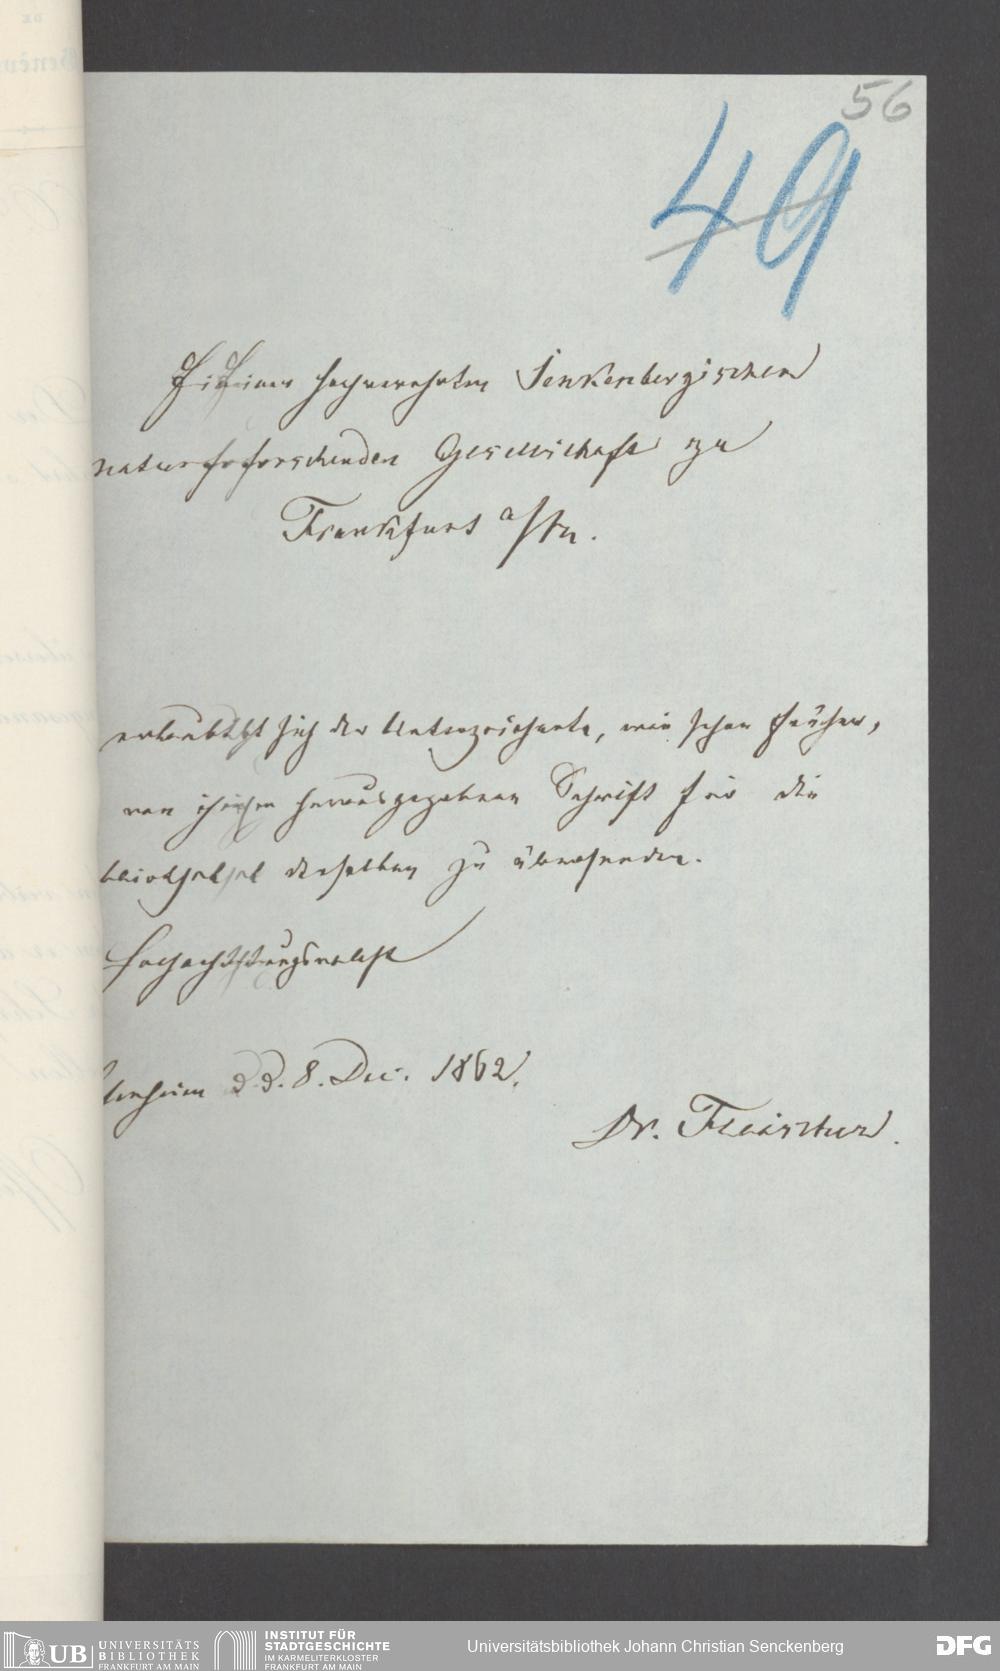 56
49
Einer hochverehrten Senkenbergischen
naturforschenden Gesellschaft zu
Frankfurt a/M.
erlaubt sich der Unterzeichnete, wie schon früher,
von ihm herausgegebenen Schrift für die
bliothek derselben zu übersenden.
Hochachtungsvollst
enheim d. 8. Dec. 1862.
Dr. Fleischer.
UB UNIVERSITÄTS
BIBLIOTHEK
FRANKFURT AM MAIN
INSTITUT FÜR
STADTGESCHICHTE
IM KARMELITERKLOSTER
FRANKFURT AM MAIN
Universitätsbibliothek Johann Christian Senckenberg
DFG